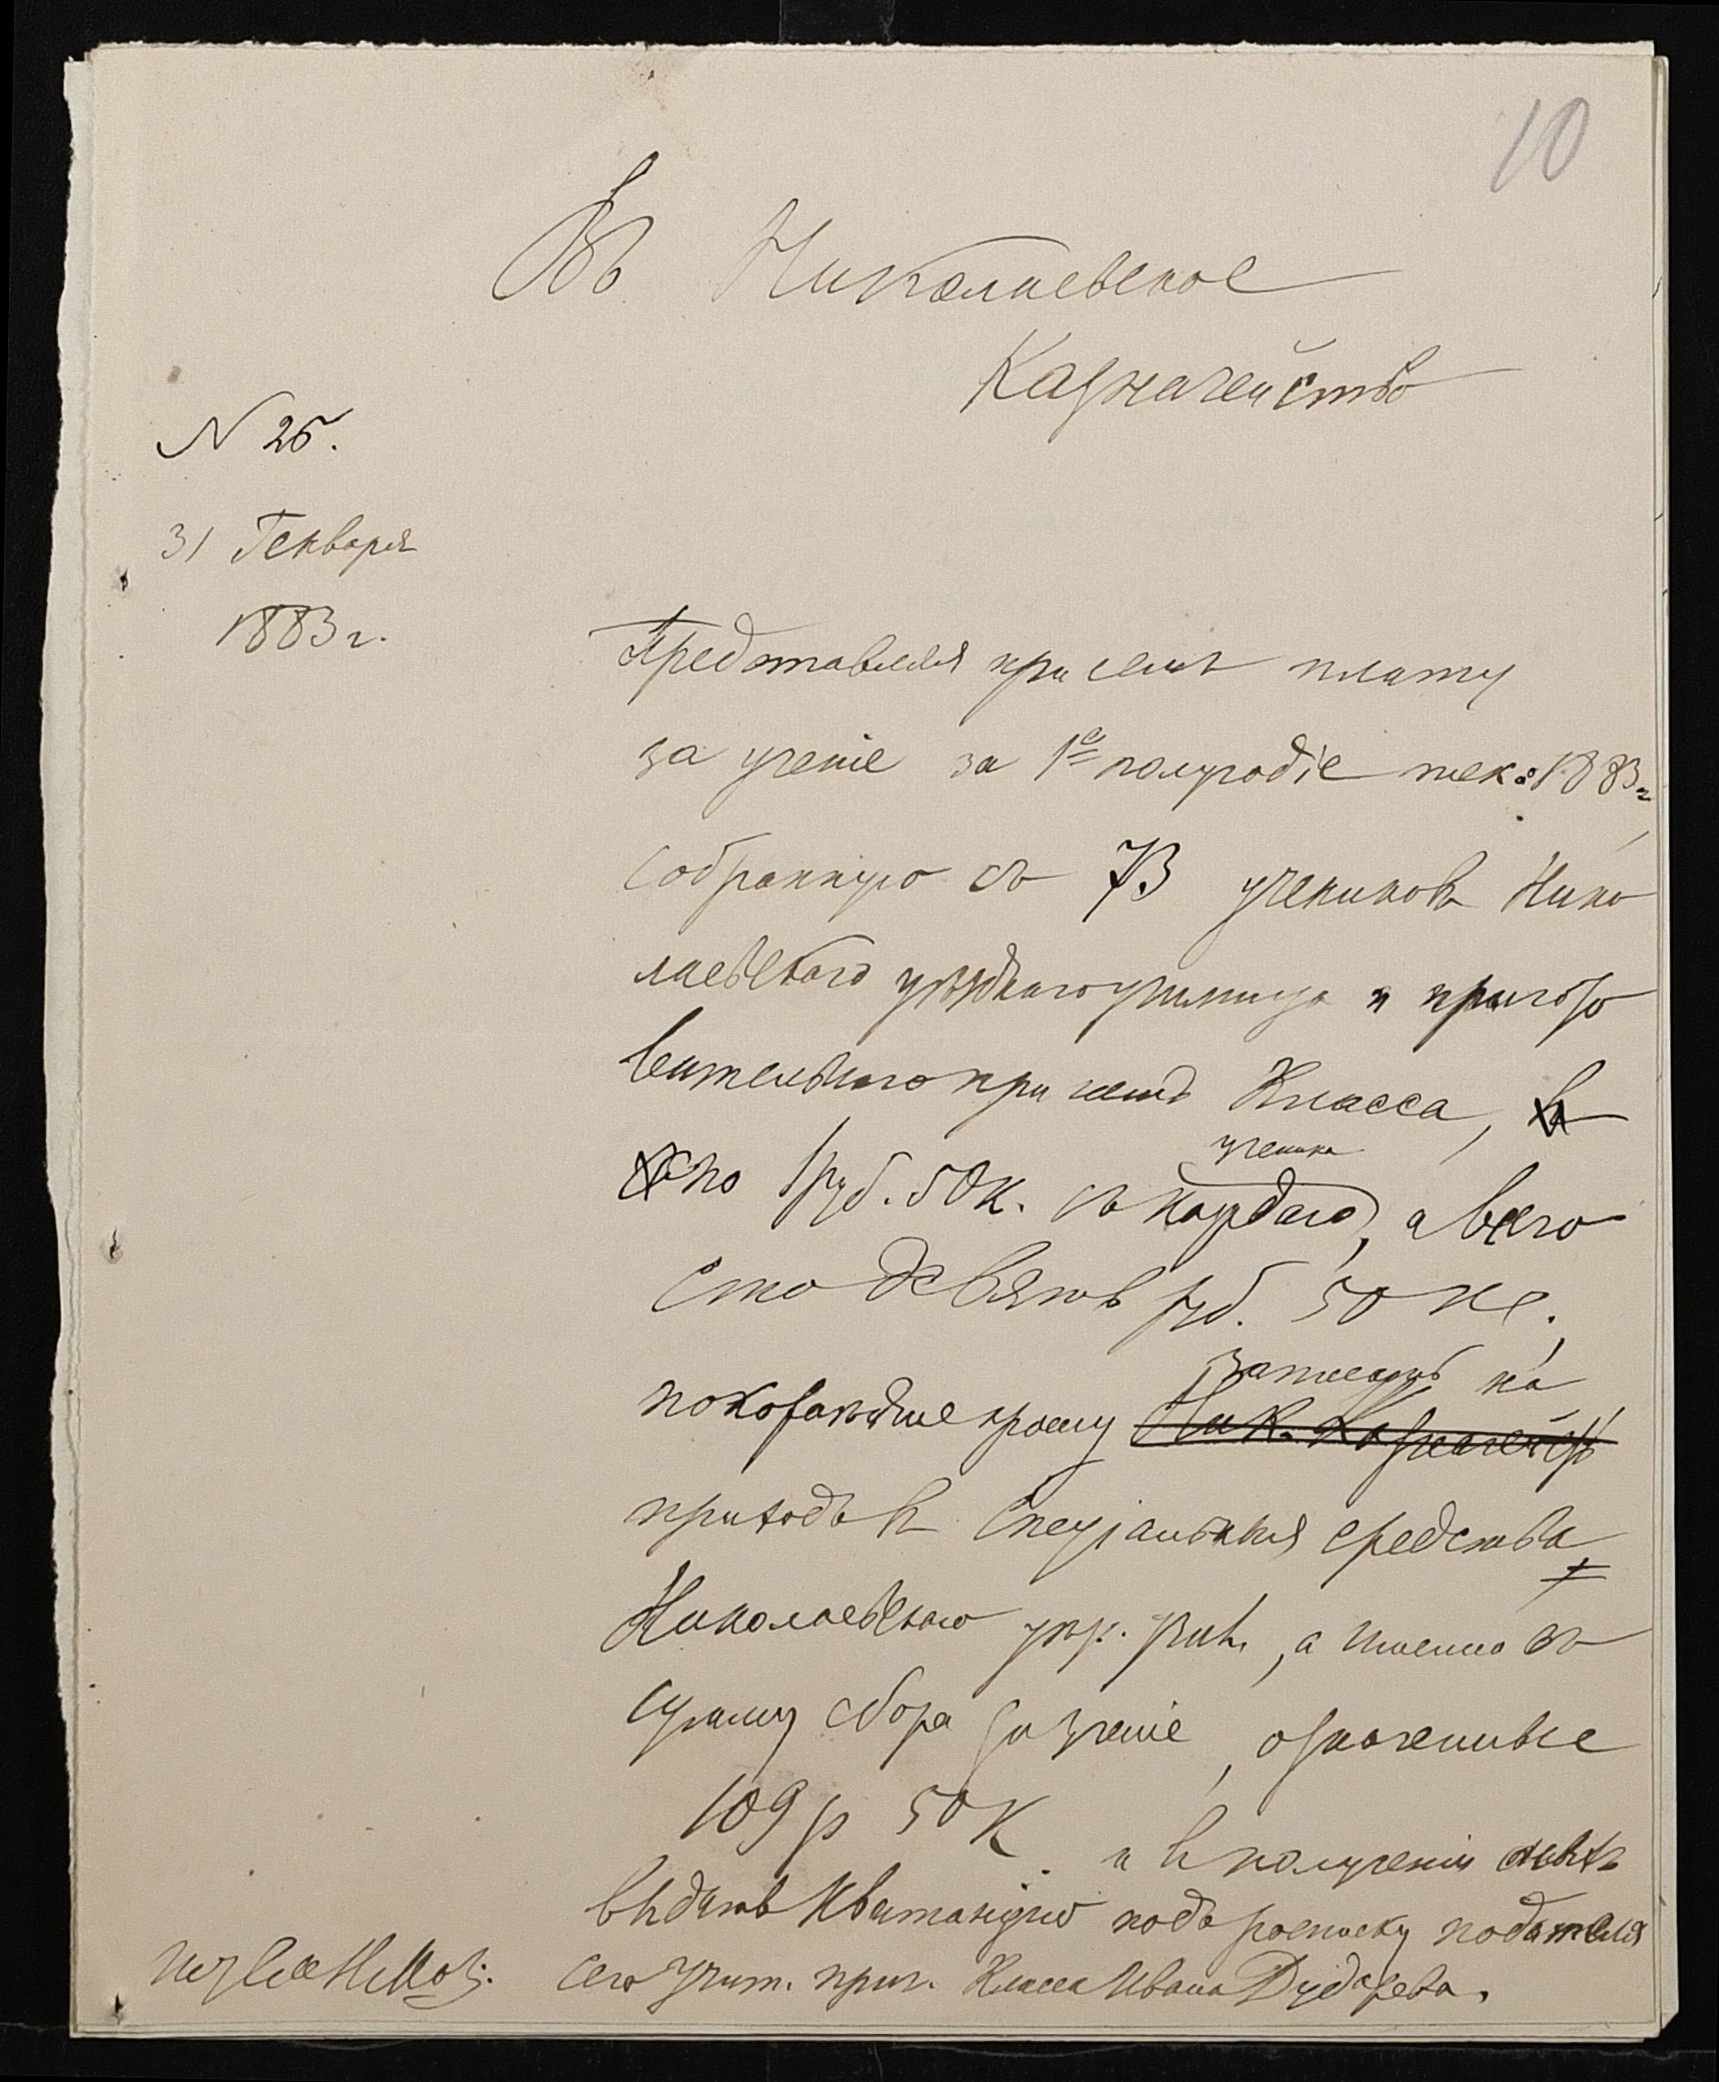 10
Въ Николаевское
Казначейство
N 25.
31 Генваря
1883 г.
Представляя при семъ плату
за ученіе за 1е полугодіе тек: 1883 г
собранную съ 73 учениковъ Нико
лаевскаго уѣзднаго училища и пригото
вительнаго при немъ Класса,
по 1 руб. 50 к. съ каждаго ученика, а всего
сто девять руб. 50 к.,
покорнѣйше прошу записать на
Ник. Казначейство
приходъ въ Спеціальныя средства
Николаевскаго уѣз. учил., а именно въ
сумму сбора за ученіе, означенные
109 р 50 к. и въ полученіи
выдать Квитанцію подъ росписку подателя
сего учит. приг. Класса Ивана Дударева.